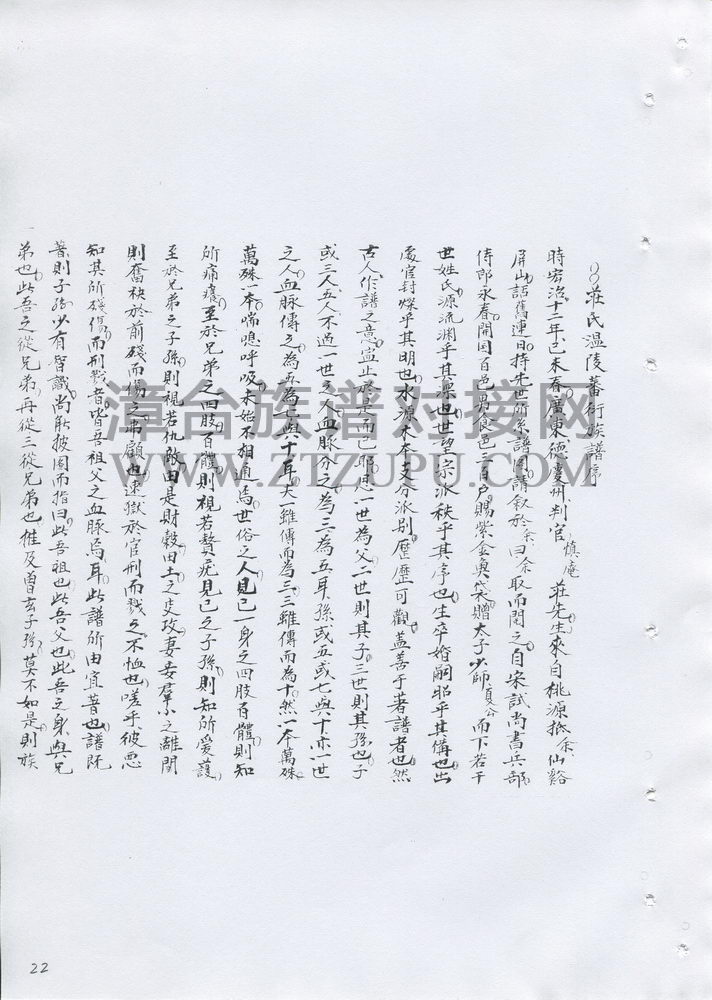 莊氏溫陵蕃衍族譜序
時宏治十二年己未春廣東德慶州判官慎庵莊先生來自桃源抵余仙谿
屏山話舊連日持先世所系譜圖請敘於余曰余取而閱之自宋試尚書兵部
侍郎永春開国百邑男食邑三百户賜紫金魚袋贈太子少師夏公而下若干
世姓氏源流渊乎其深也世望宗派秩乎其序也生卒婚嗣昭乎其備也出
處官封燦乎其明也水源木本支分派別歷歷可觀蓋善于著譜者也然
古人作譜之意豈止於是而已耶是一世為父二世則其子三世則其孫也子
或三人五人不過一世之人血脉分之為三為五耳孫或五或七與十亦一世
之人血脉傳之為五為七與十耳夫一雖傳而為三三雖傳而為十然一本萬殊
萬殊一本喘息呼吸未始不相通焉世俗之人見己一身之四肢百體則知
所痛癢至於兄弟之四肢百體則視若贅疣見己之子孫則知所愛護
至於兄弟之子孫則視若仇敵由是財穀田土之交攻妻妾羣小之離間
則奮袂於前殘而傷之弗顧也速獄於官刑而戮之不恤也嗟乎彼惡
知其所殘傷而刑戮者皆吾祖父之血脉焉耳此譜所由宜著也譜既
著則子孫少有智識尚能披圖而指曰此吾祖也此吾父也此吾之身與兄
弟也此吾之從兄弟再從三從兄弟也推及曾玄子孫莫不如是則族
22
漳台族谱对接网
WWW.ZTZUPU.COM